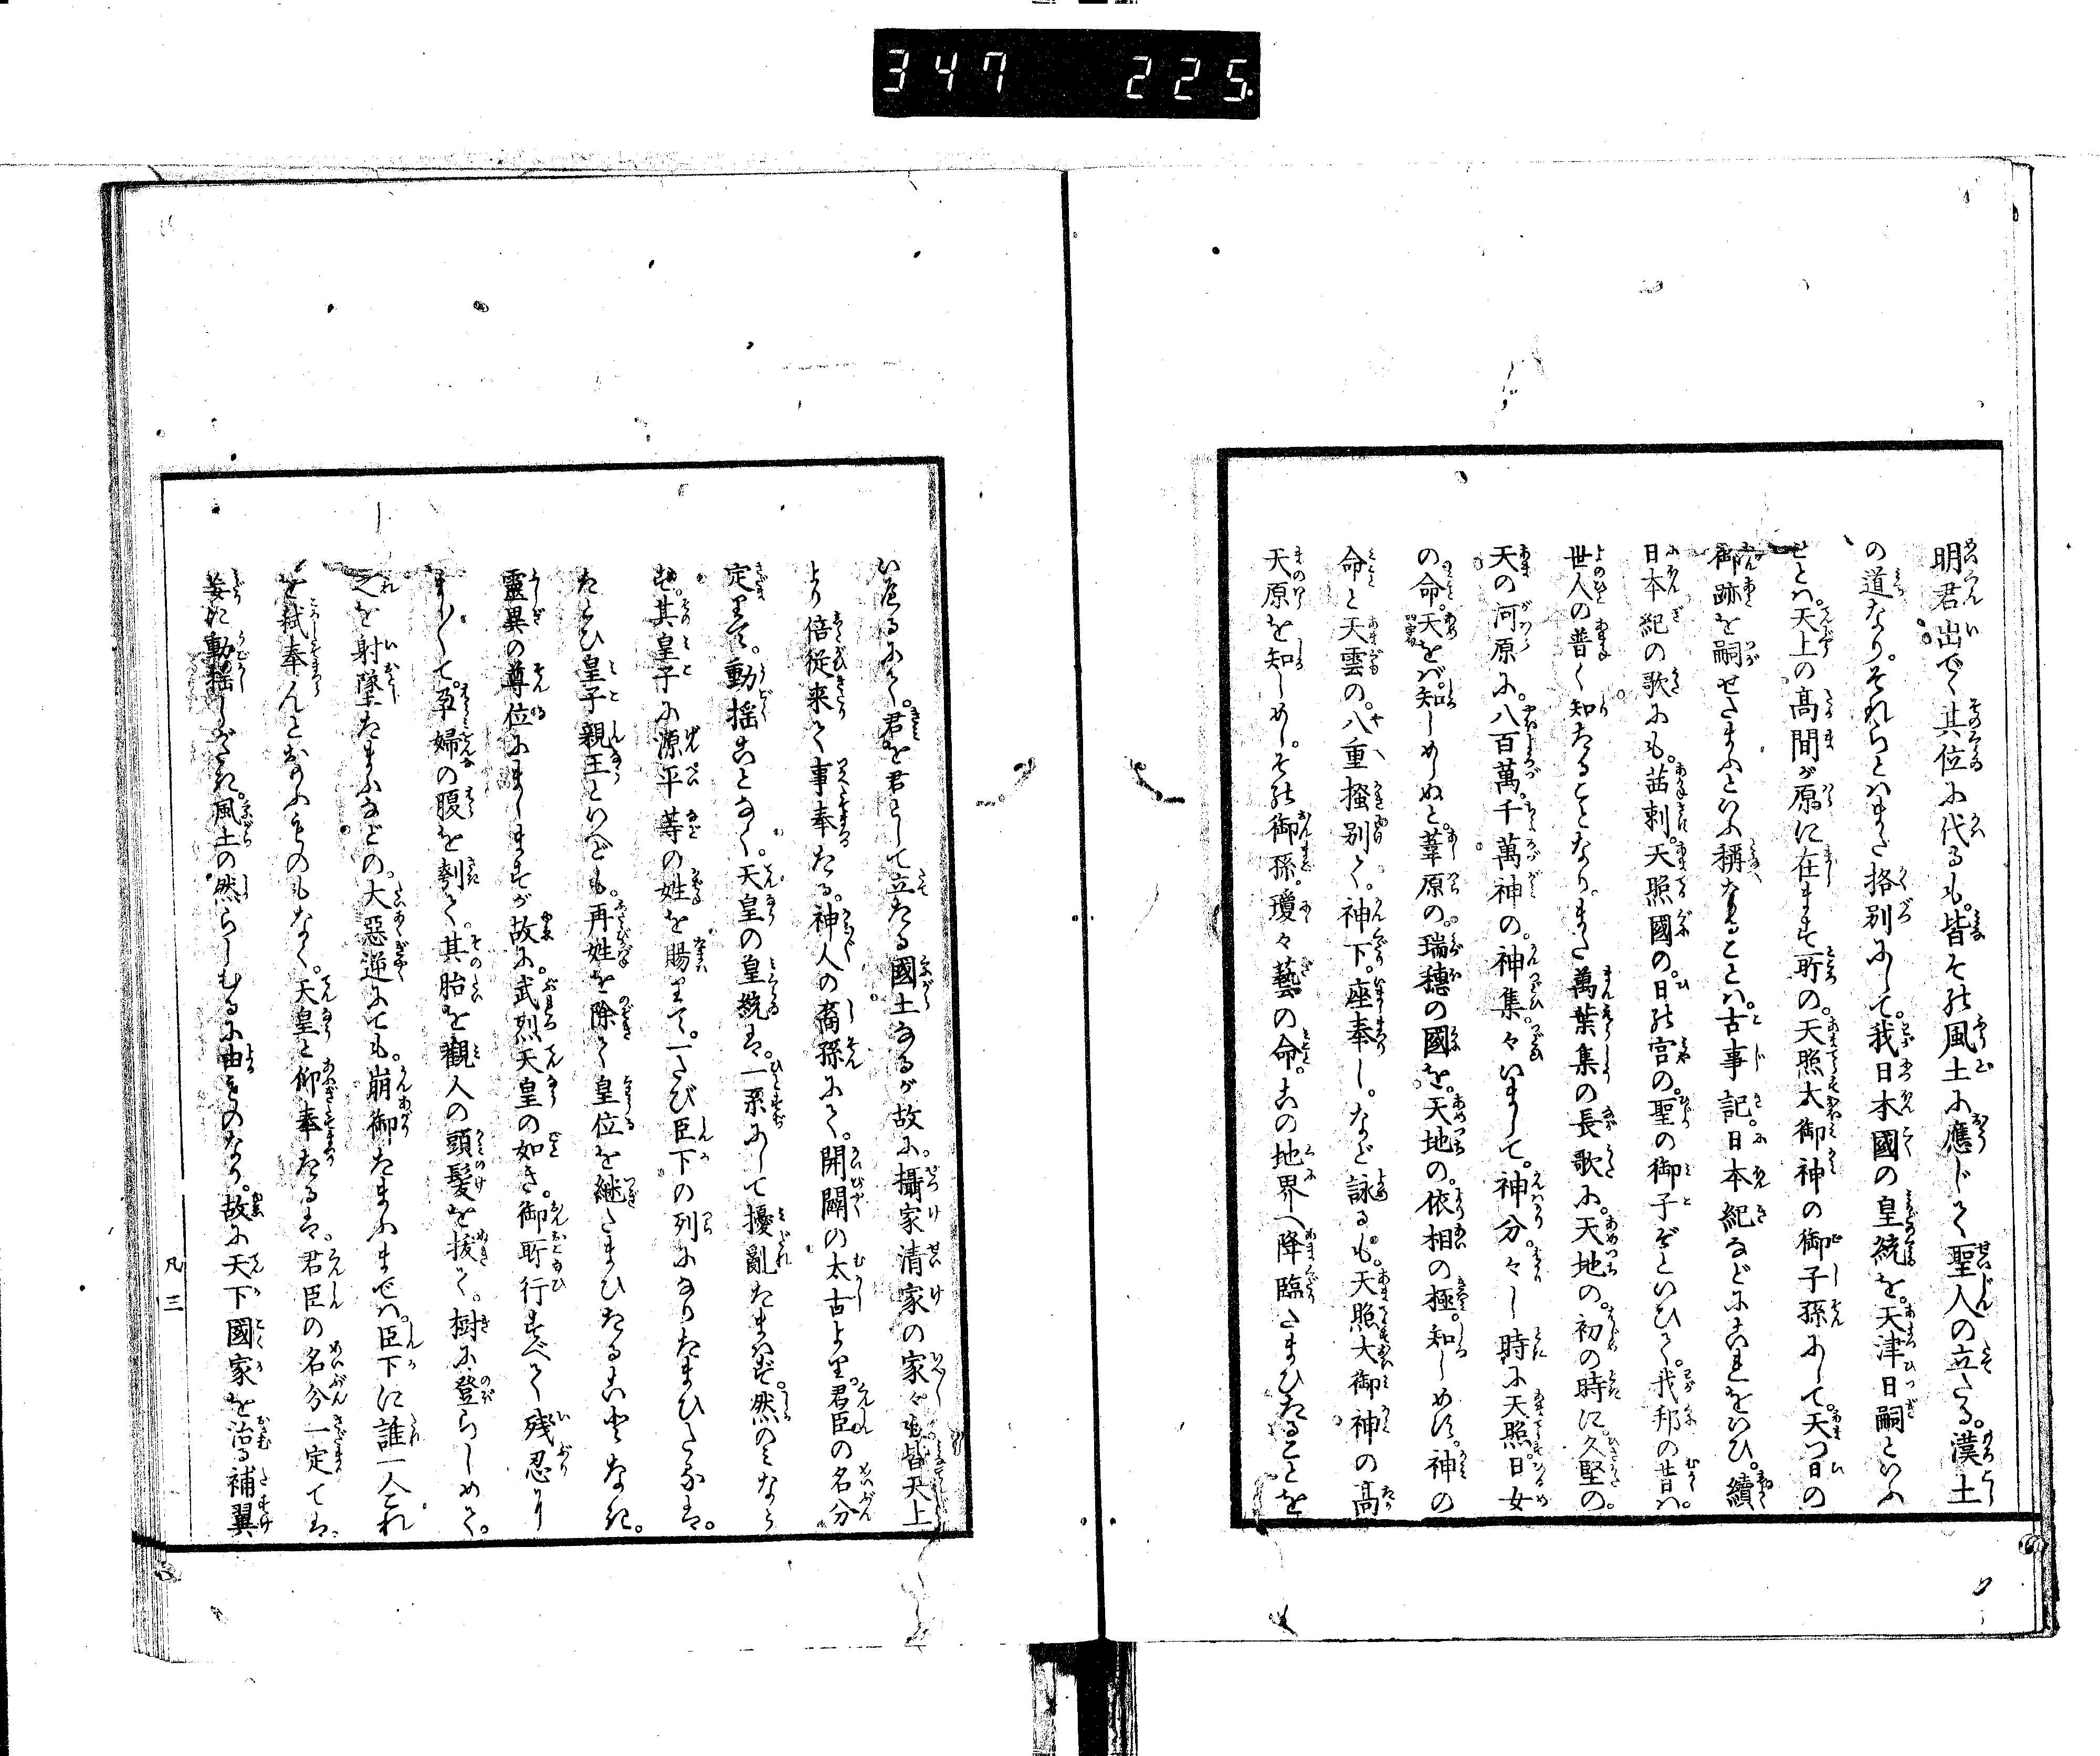 347 225
明君出でく其位に代るも。皆その風土に應じて聖人の立たる。漢土
の道なり。それらとハまた挌別にして。我日本國の皇統を。天津日嗣といふ
ことハ。天上の髙間が原に在ます所の。天照大御神の御子孫にして。天つ日の
御跡を嗣せたまふといふ稱なることハ。古事記。日本紀などにこれをいひ。續
日本紀の歌にも。茜刺。天照國の。日の宮の。聖の御子ぞといひて。我邦の昔ハ。
世人の普く知たることなり。また萬葉集の長歌に。天地の。初の時に。久堅の。
天の河原に。八百萬。千萬神の。神集。々いまして。神分。々し時に天照。日女
の命。天をバ知しめしぬと。葦原の。瑞穗の國を。天地の。依相の極。知しめす。神の
命と天雲の。八重掻別て。神下。座奉し。など詠るも。天照大御神の髙
天原を知しめし。その御孫。瓊々藝の命。この地界へ降臨たまひたることを
いへるにて。君を君として立たる國土なるが故に。攝家清家の家々も皆天上
より倍從来て事奉たる。神人の裔孫にて。開闢の太古より。君臣の名分
定りて。動揺ことなく。天皇の皇統は。一系にして擾亂たまハず。然のみなら
ず。其皇子に源平等の姓を賜りて。一たび臣下の列になりたまひたるは。
たとひ皇子親王といへども。再姓を除て皇位を継たまひたることなき。
靈異の尊位にましますが故に。武烈天皇の如き。御所行すべて残忍
まし〳〵て。孕婦の腹を刳て。其胎を觀人の頭髪を拔て。樹に登らしめて。
之を射墜たまふなどの。大惡逆にても。崩御たまふまでハ。臣下に誰一人これ
を弑奉んとおもふものもなく。天皇と仰奉たるは。君臣の名分一定ては。
妄に動揺しがたき。風土の然らしむるに由ものなり。故に天下國家を治る補翼
凡 三